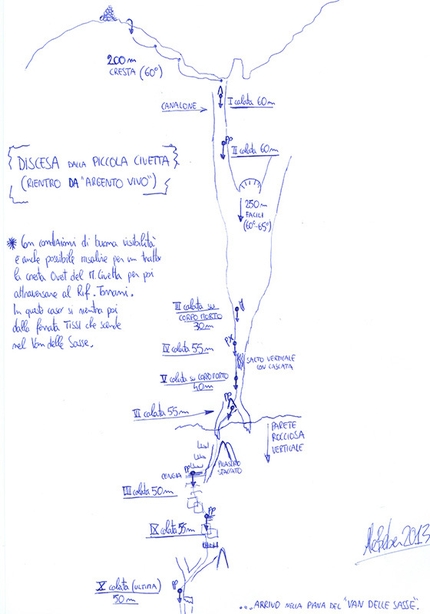 200m
CRESTA (60°)
CANALONE
I calata 60m
II calata 60m
DISCESA DALLA PICCOLA CIVETTA
(RIENTRO DA "ARGENTO VIVO")
250m
FACILI
(60°-65°)
* Con condizioni di buona visibilità
è anche possibile risalire per un tratto
la cresta Ovest del M. Civetta per poi
attraversare al Rif. Torrani.
In questo caso si rientra poi
dalla ferrata Tissi che scende
nel Van delle Sasse.
III calata su
CORPO MORTO
30m
IV calata 55m
SALTO VERTICALE
CON CASCATA
V calata su CORPO MORTO
40m
VI calata 55m
PARETE
ROCCIOSA
VERTICALE
PILASTRO
STACCATO
CENGIA
VIII calata 50m
IX calata 55m
X calata (ULTIMA)
50m
2013
...ARRIVO NELLA PIANA DEL "VAN DELLE SASSE".